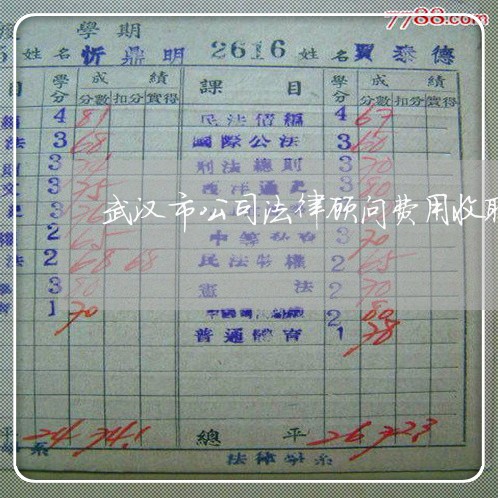 7788.com
學期
姓名 忻鼎明 2616 姓名 賈泰德
目 學分 成績 課目 學分 成績
分數 扣分 實得 分數 扣分 實得
4 81 民法債編 4 67
法 3 68 國際公法 3 60
3 刑法總則 3 70
3 75 西洋通史 3 80
武汉市公司法律顾问费用收取
2 65 3 70
法 2 68 68 民法物權 2 65
3 80 憲法 2 70
1 70 2 80
普通體育 1 78
平 24 74.1 總平 26 72.3
系 法律學系